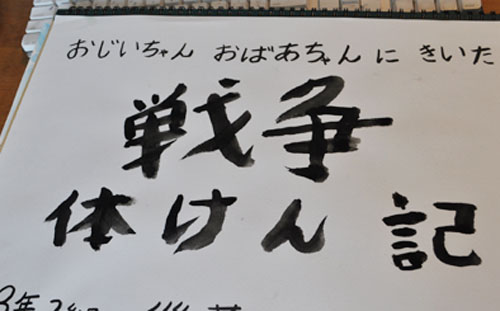 おじいちゃん おばあちゃんに きいた
戦争
体けん記
3年